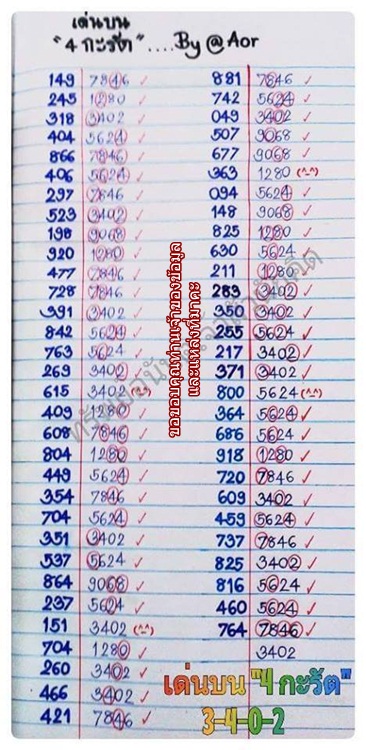 เด่นบน
"4 กะรัต" ....By @Aor
149 7846 ✓
245 1280 ✓
318 3402 ✓
404 5624 ✓
866 7846 ✓
406 5624 ✓
297 7846 ✓
523 3402 ✓
198 9068 ✓
920 1280 ✓
477 7846 ✓
728 7846 ✓
391 3402 ✓
842 5624 ✓
763 5624 ✓
269 3402 ✓
615 3402 (^-^)
409 1280 ✓
608 7846 ✓
804 1280 ✓
449 5624 ✓
354 7846 ✓
704 5624 ✓
351 3402 ✓
537 5624 ✓
864 9068 ✓
237 5624 ✓
151 3402 (^-^)
704 1280 ✓
260 3402 ✓
466 3402 ✓
421 7846 ✓
881 7846 ✓
742 5624 ✓
049 3402 ✓
507 9068 ✓
677 9068 ✓
363 1280 (^-^)
094 5624 ✓
148 9068 ✓
825 1280 ✓
630 5624
211 1280 ✓
283 3402 ✓
350 3402 ✓
255 5624 ✓
217 3402 ✓
371 3402 ✓
800 5624 (^-^)
364 5624 ✓
686 5624 ✓
918 1280 ✓
720 7846 ✓
609 3402 ✓
459 5624 ✓
737 7846 ✓
825 3402 ✓
816 5624 ✓
460 5624 ✓
764 7846 ✓
3402
ขอขอบคุณท่านเจ้าของข้อมูล
และแหล่งที่มาค่ะ
เด่นบน "4 กะรัต"
3-4-0-2